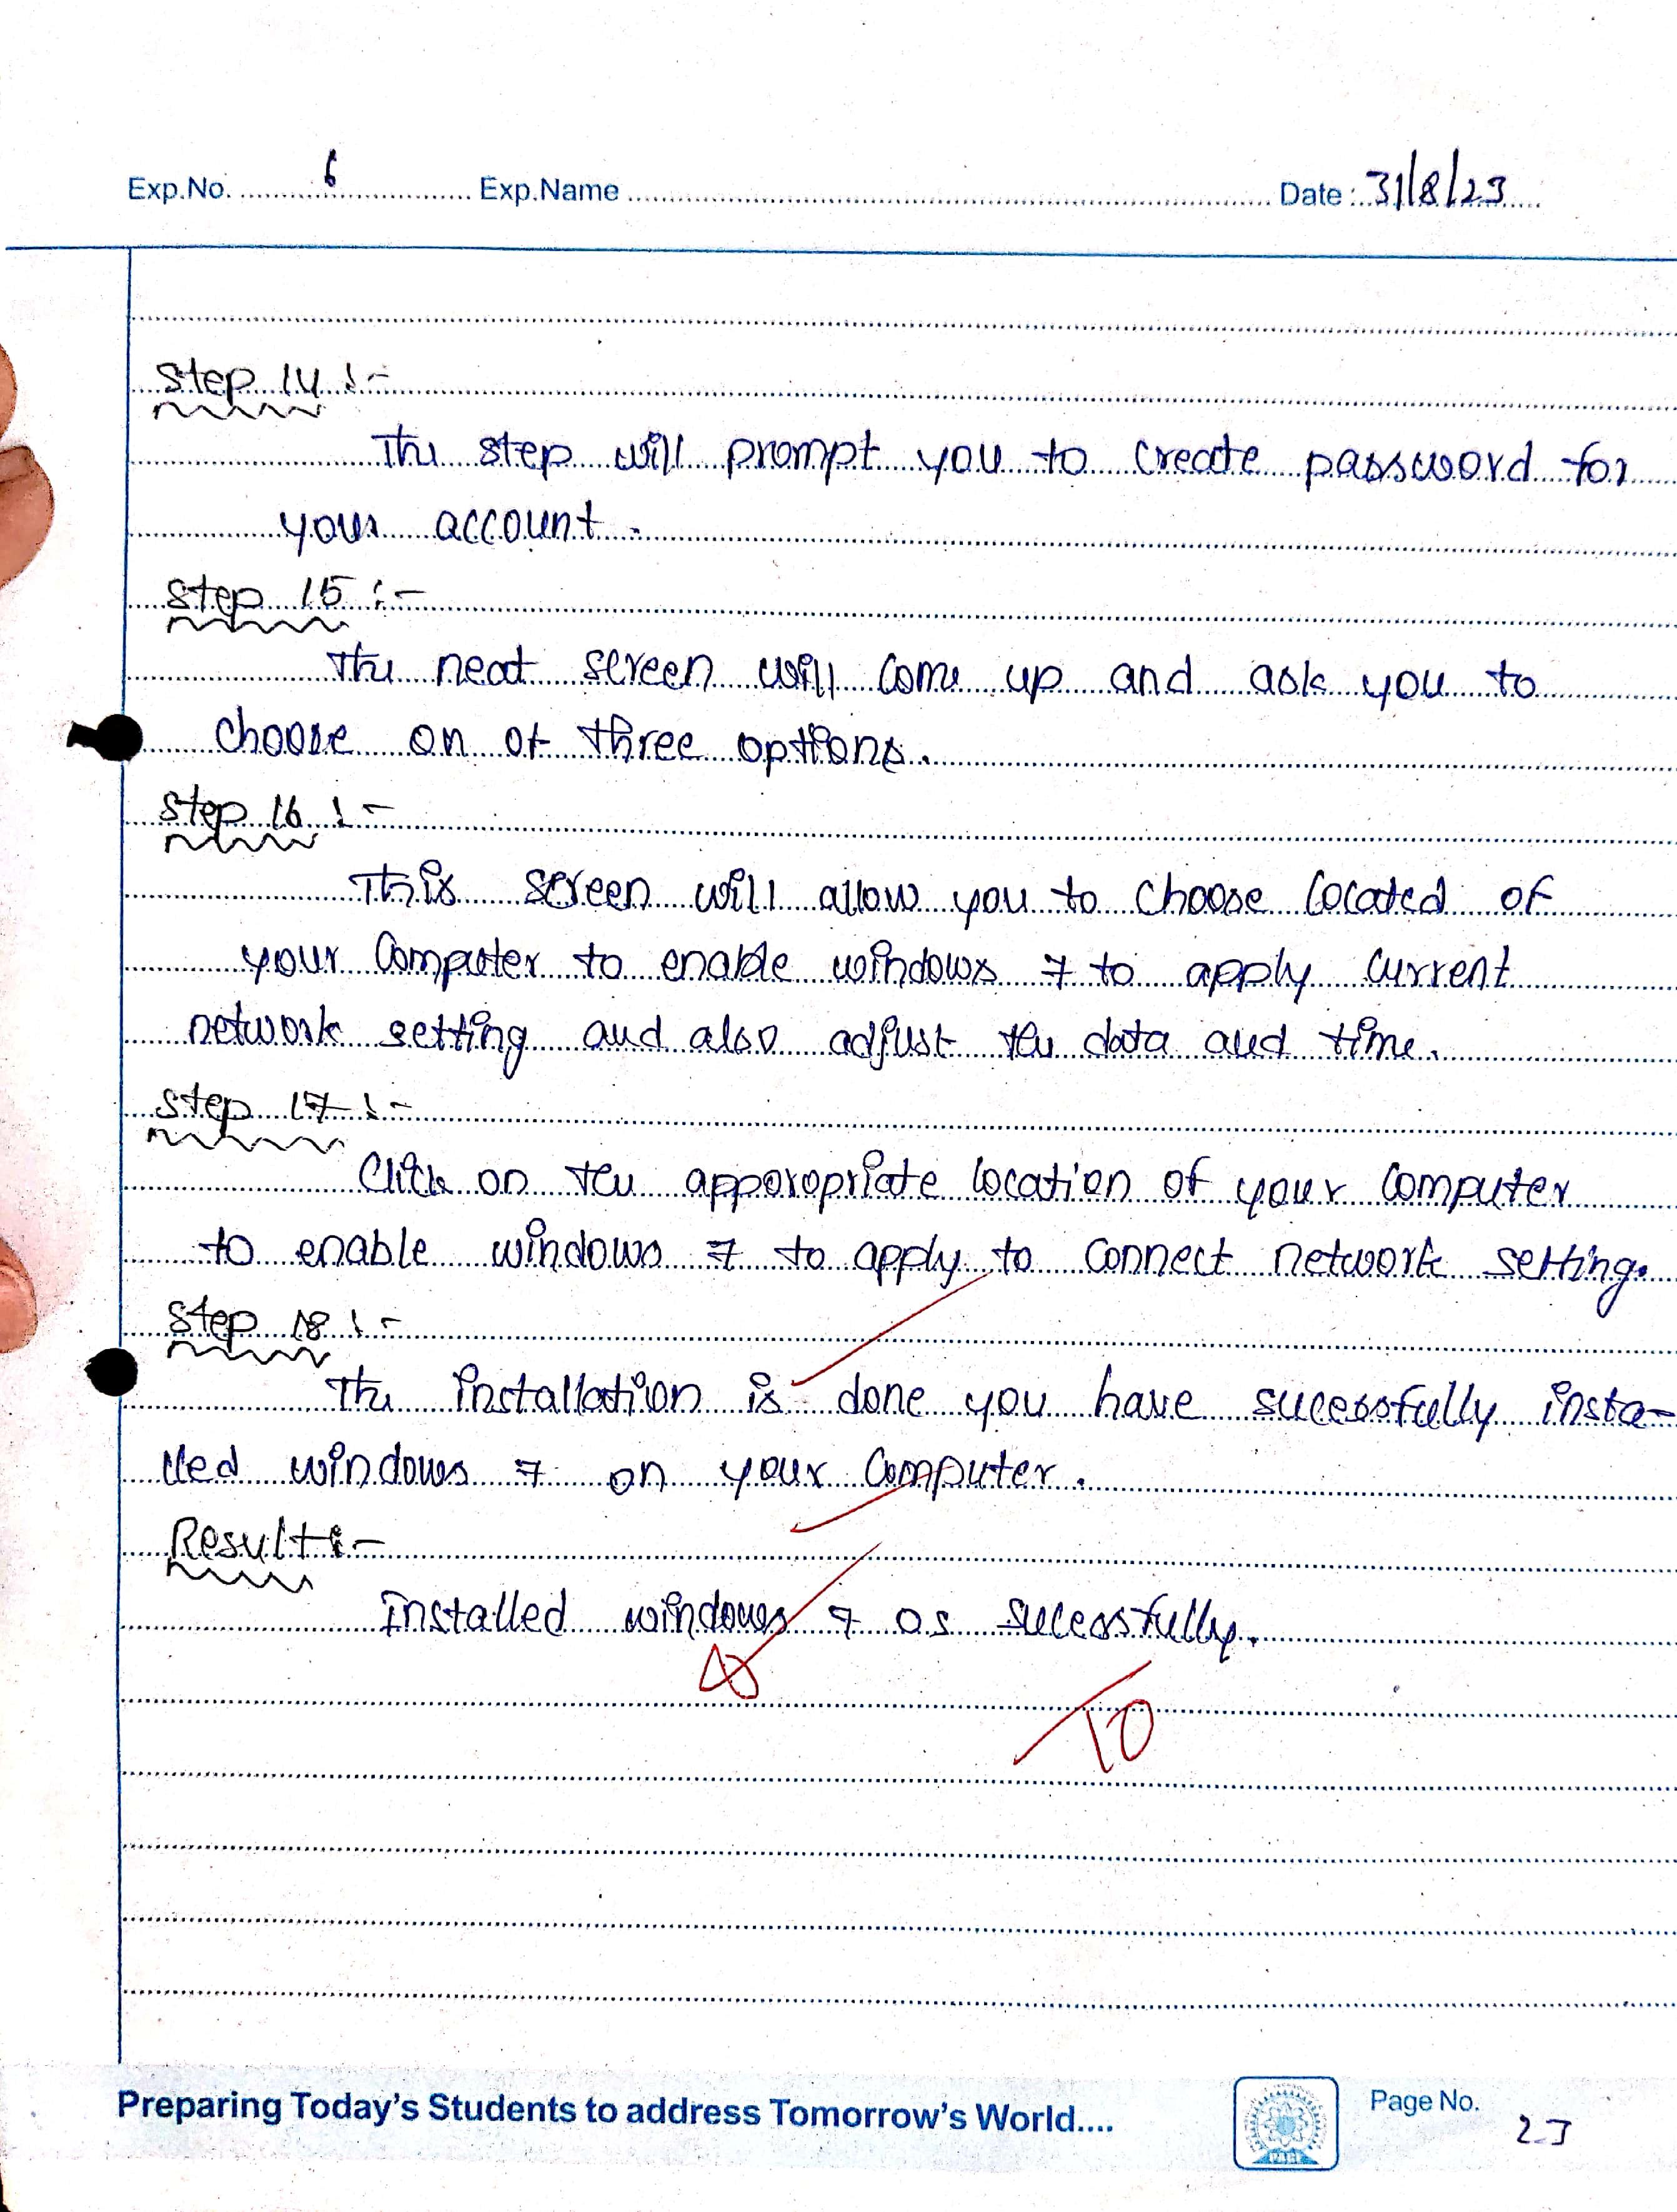 Exp.No. 6 Exp.Name Date: 31/8/23
Step 14 :-
The step will prompt you to create password for
your account.
Step 15 :-
The next screen will come up and ask you to
choose on of three options.
Step 16 :-
This screen will allow you to choose located of
your Computer to enable windows 7 to apply current
network setting and also adjust the data and time.
Step 17 :-
Click on the apporopriate location of your computer
to enable windows 7 to apply to connect network setting.
Step 18 :-
The installation is done you have sucessfully insta-
lled windows 7 on your computer.
Result:-
Installed windows 7 os sucessfully.
10
Preparing Today's Students to address Tomorrow's World....
Page No. 23